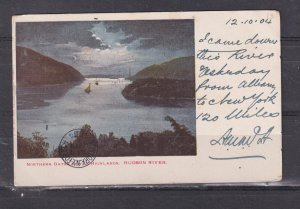 12-10-04
I came down
this River
Yesterday
from Albany
to New York
120 Miles
NORTHERN GATE HIGHLANDS, HUDSON RIVER.